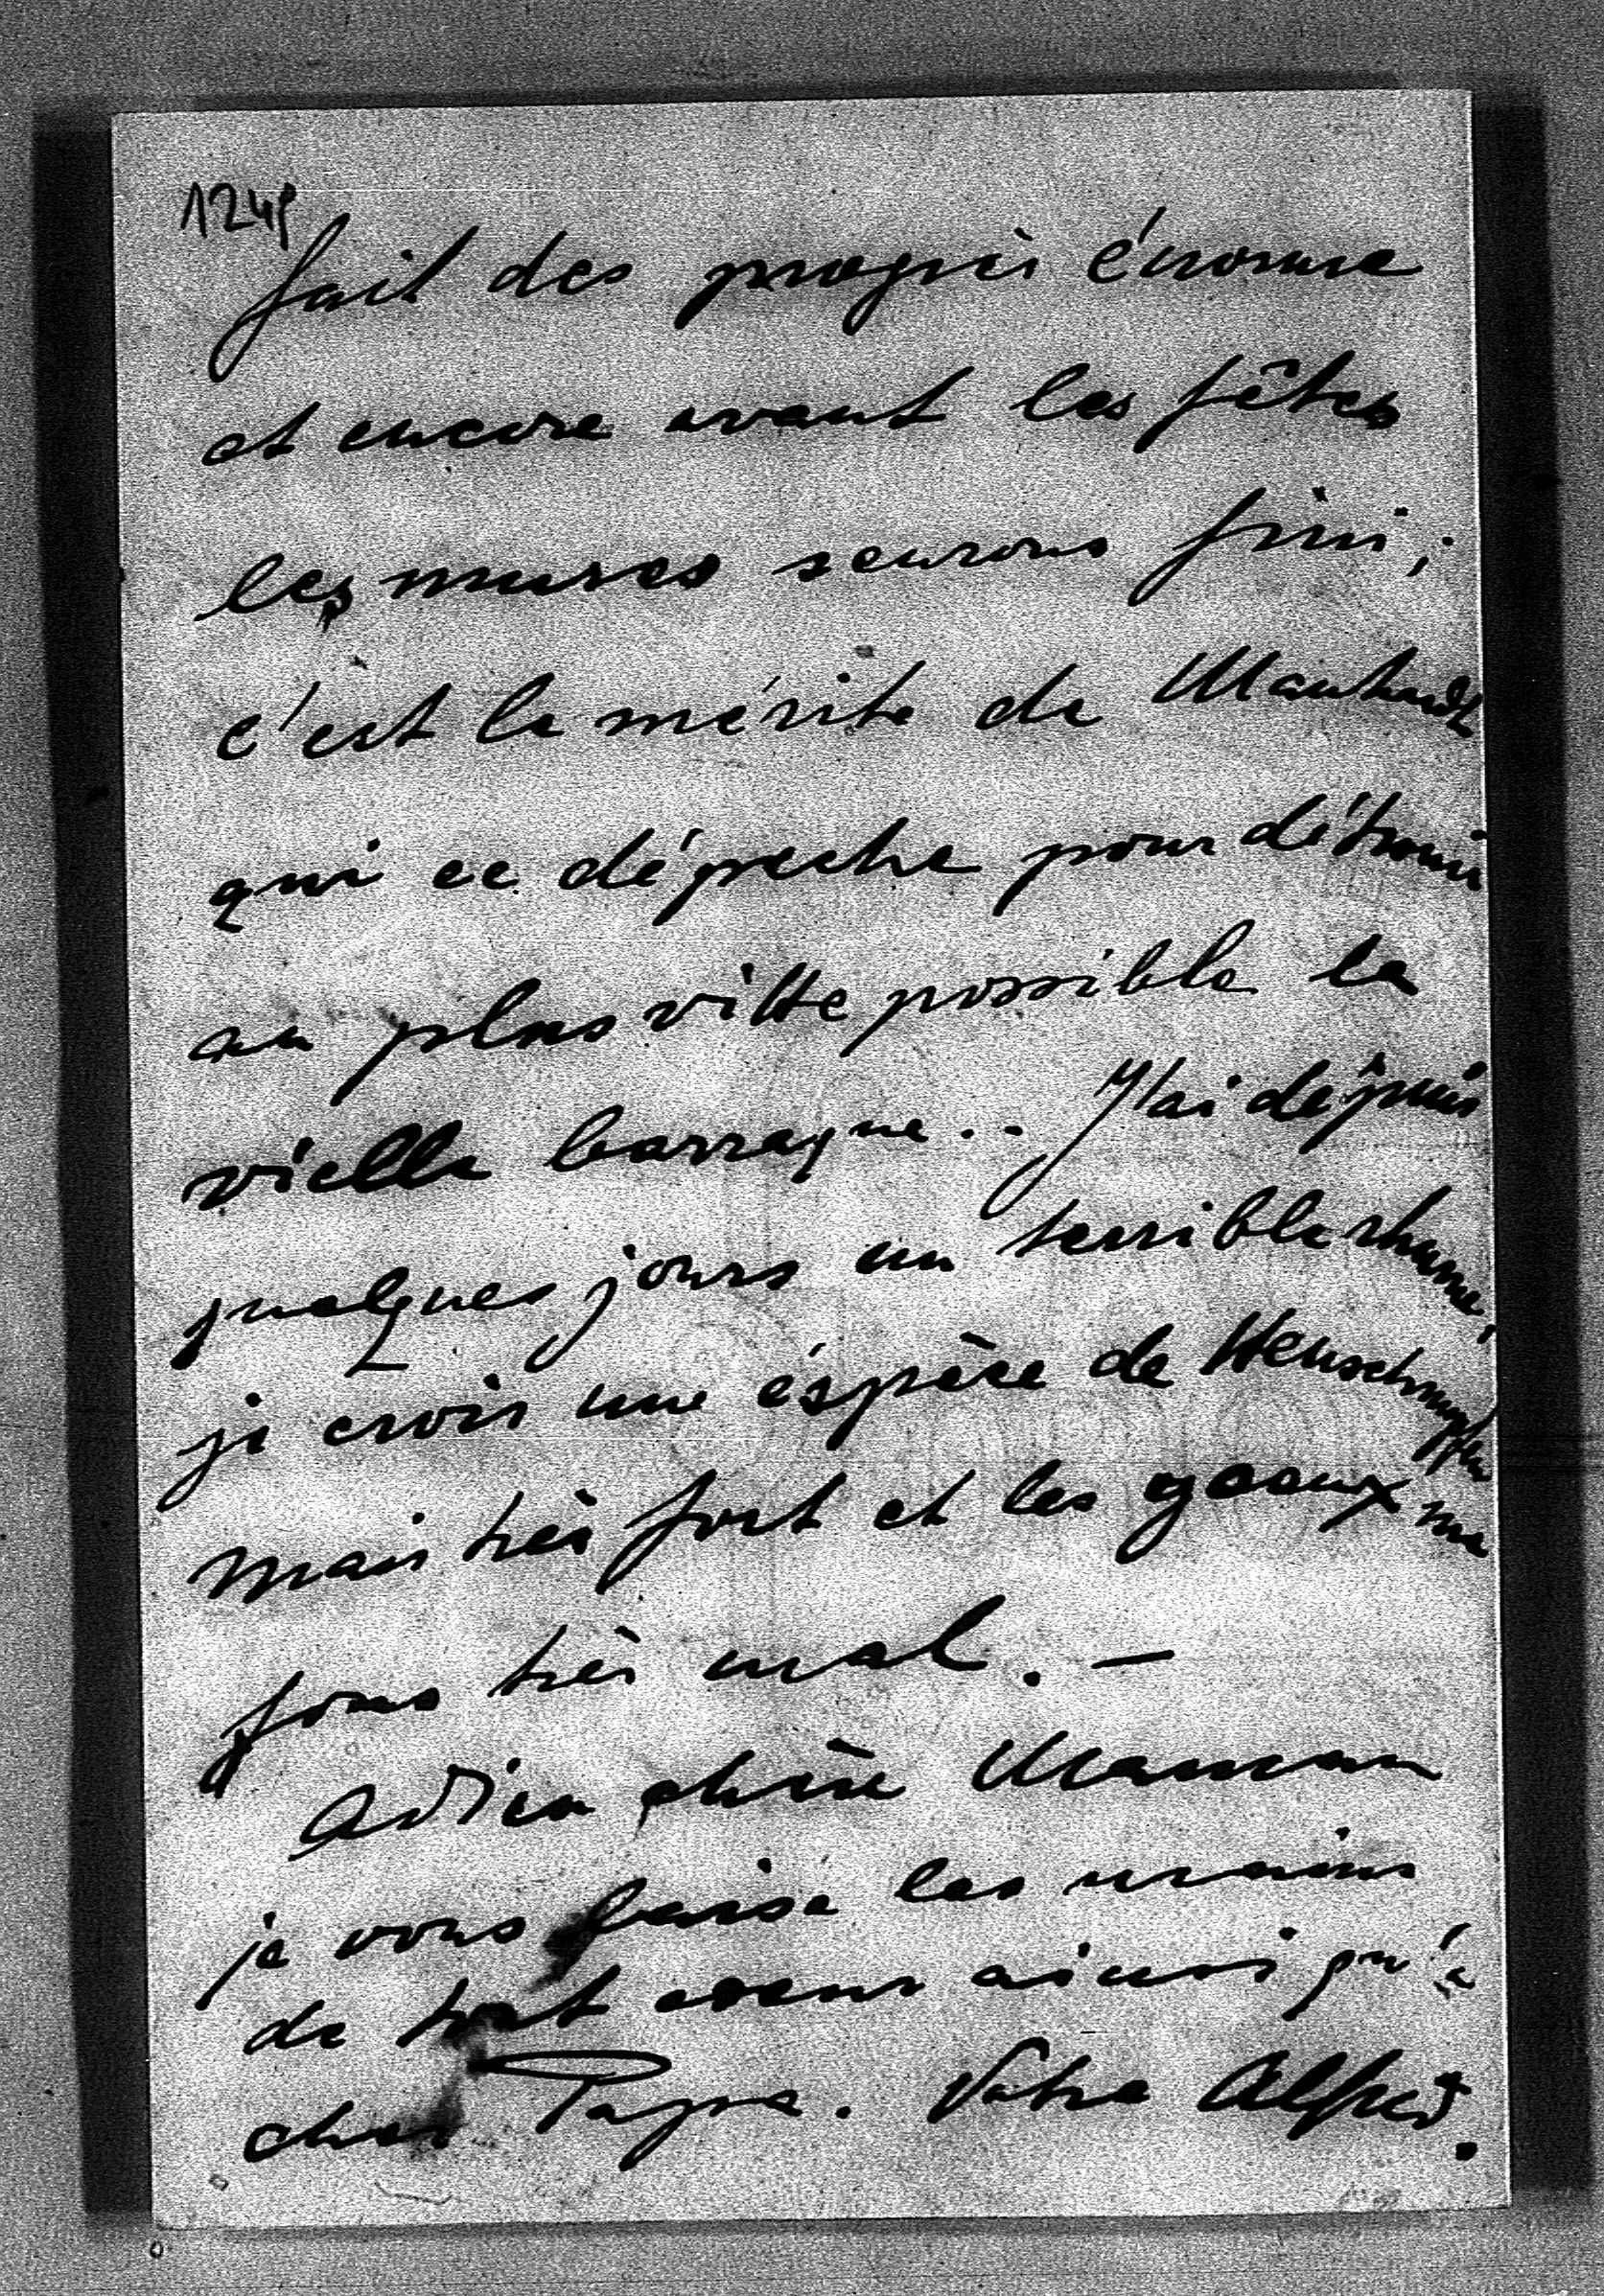 124
fait des progrès énorme
et encore avant les fêtes
les mures seurons fini;
c'est le mérite de
qui ce dépeche pour détruir
au plus vitte possible la
vielle barraque.. J'ai dépuis
quelques jours un terrible rhume,
je crois une éspèce de Heuschnupfen
mais très fort et les yeaux me
fons très mal. —
Adieu chère Maman
je vous baise les mains
de tout coeur ainsi qu'à
cher Papa. Votre Alfred.